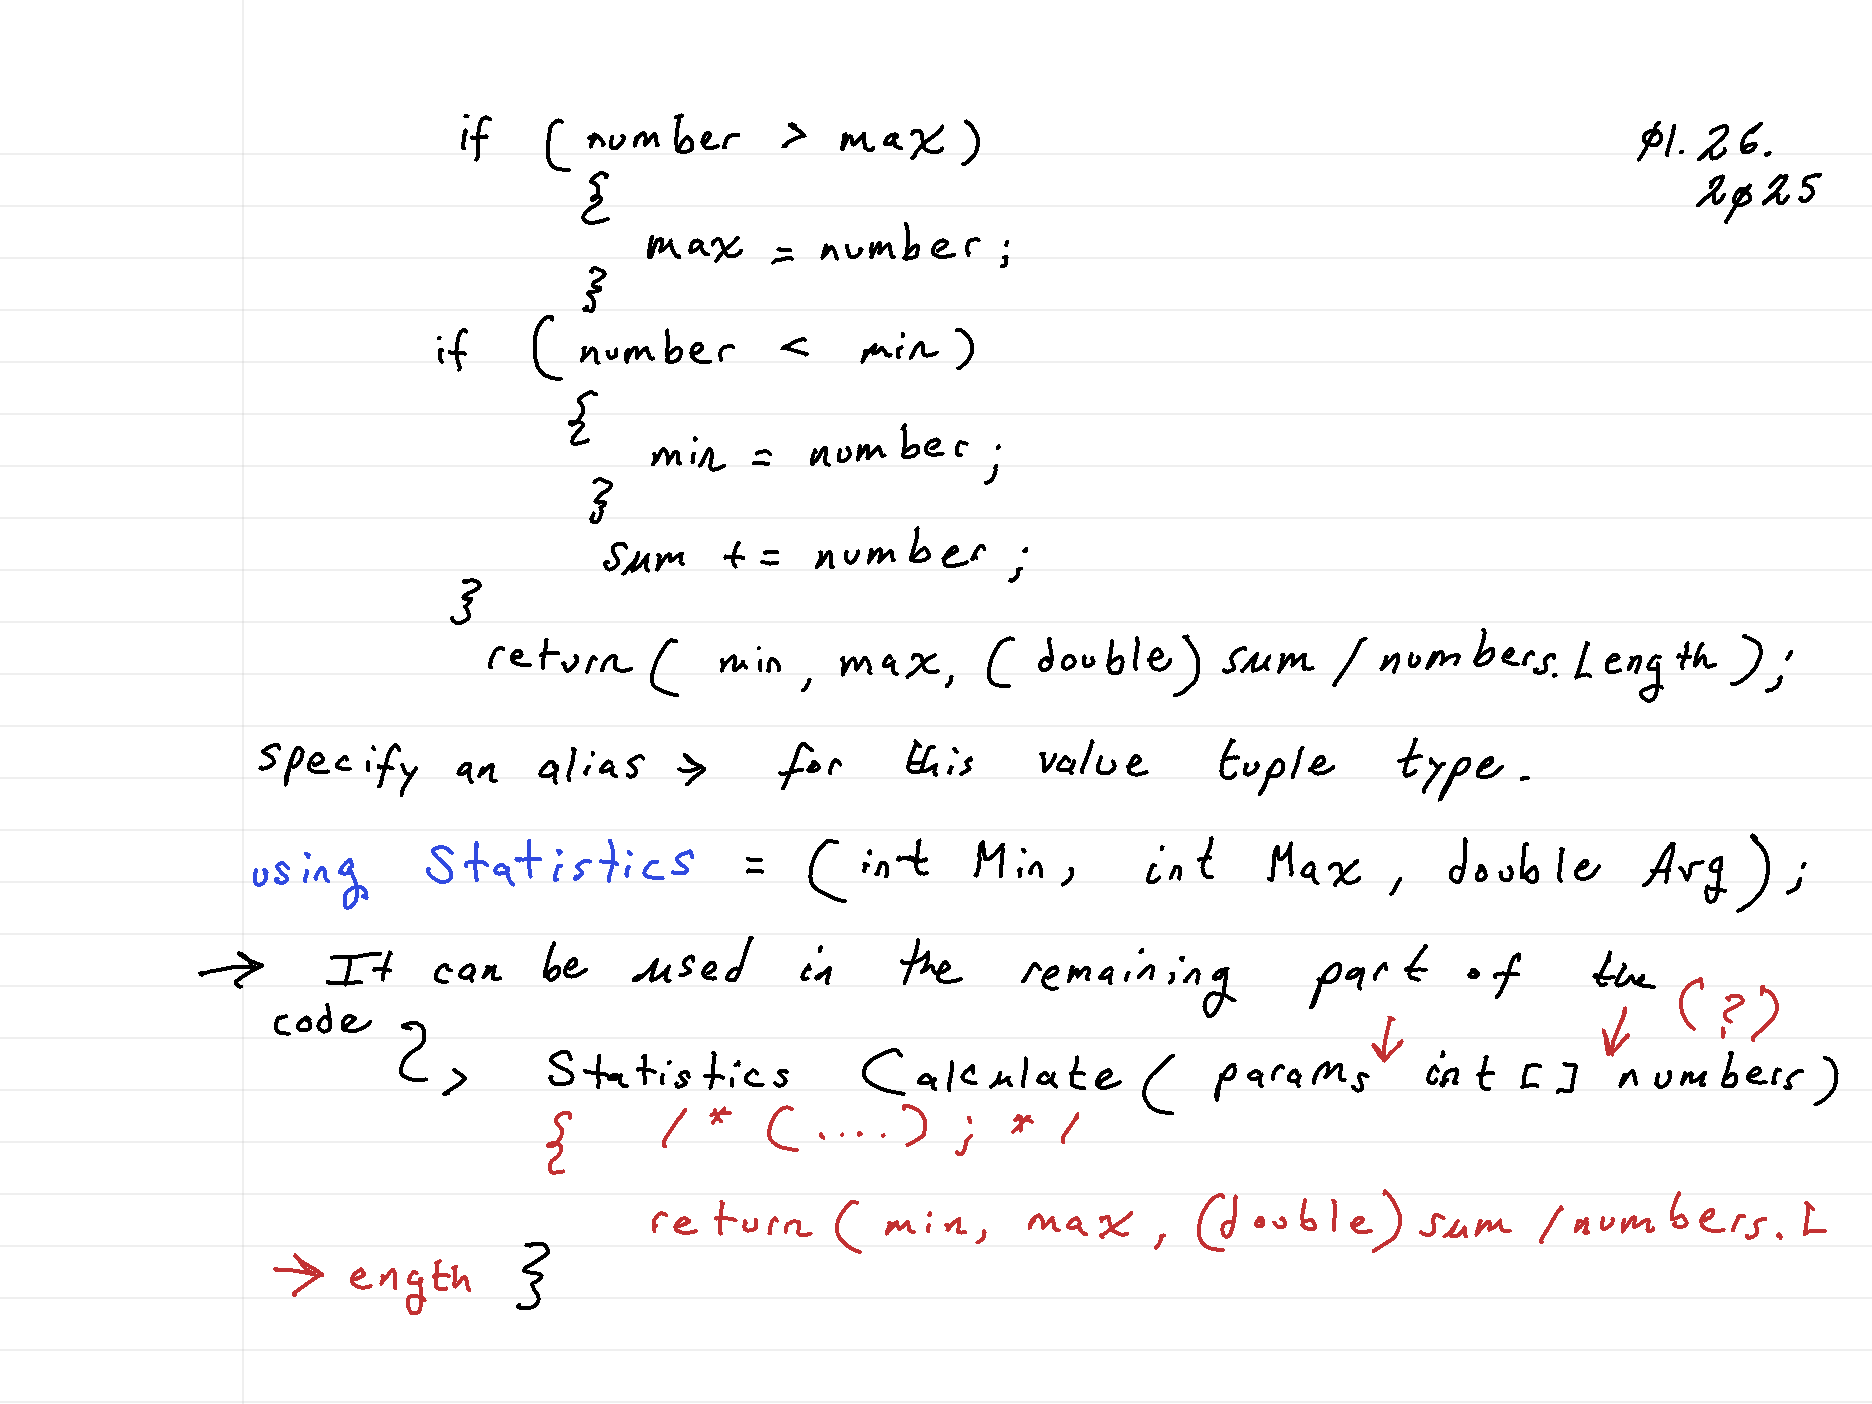 if (number > max)
Ø1.26.
2Ø25
{
max = number;
}
if (number < min)
{
min = number;
}
sum += number;
}
return( min, max, (double) sum / numbers.Length);
specify an alias → for this value tuple type.
using Statistics = (int Min, int Max, double Avg);
→ It can be used in the remaining part of the
code
(?)
Statistics Calculate( params int[] numbers)
{ /* (....); */
return( min, max, (double) sum / numbers.L
→ ength }